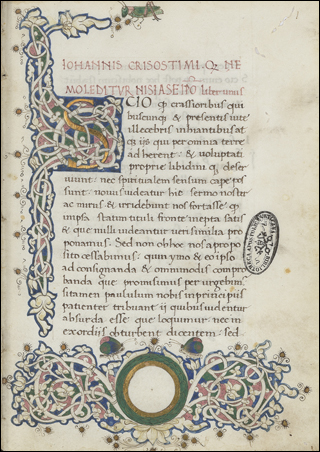 IOHANNIS CRISOSTIMI Q NE
MO LEDITUR NISI A SEIPO liber unus
SCIO qp crassioribus qui
buscunqz & presentis uite
illecebris inhiantibus at
qz iis qui per omnia terre
adherent & voluptati
proprie libidini qz deser
viunt nec spiritualem sensum cape pos
sunt novus videatur hic sermo noster
ac mirus & irridebunt nos fortasse qp
in ipsa statim tituli fronte inepta satis
& que nulli videantur verisimilia pro
ponamus Sed non ob hoc nos a propo
sito cessabimus quin ymo & eo ipso
ad consignanda & omnimodis compro
banda que promisimus per urgebim
si tamen paululum nobis in principiis
patienter tribuant ii quibus videntur
absurda esse que loquimur nec in
exordiis obturbent dicentem sed